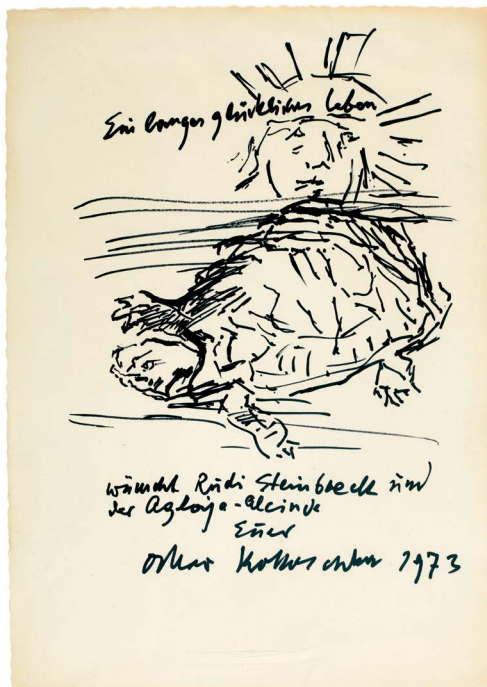 Ein langes glückliches Leben
wünscht Rudi Steinbeck und
der Aglaja-
Euer
Oskar Kokoschka 1973